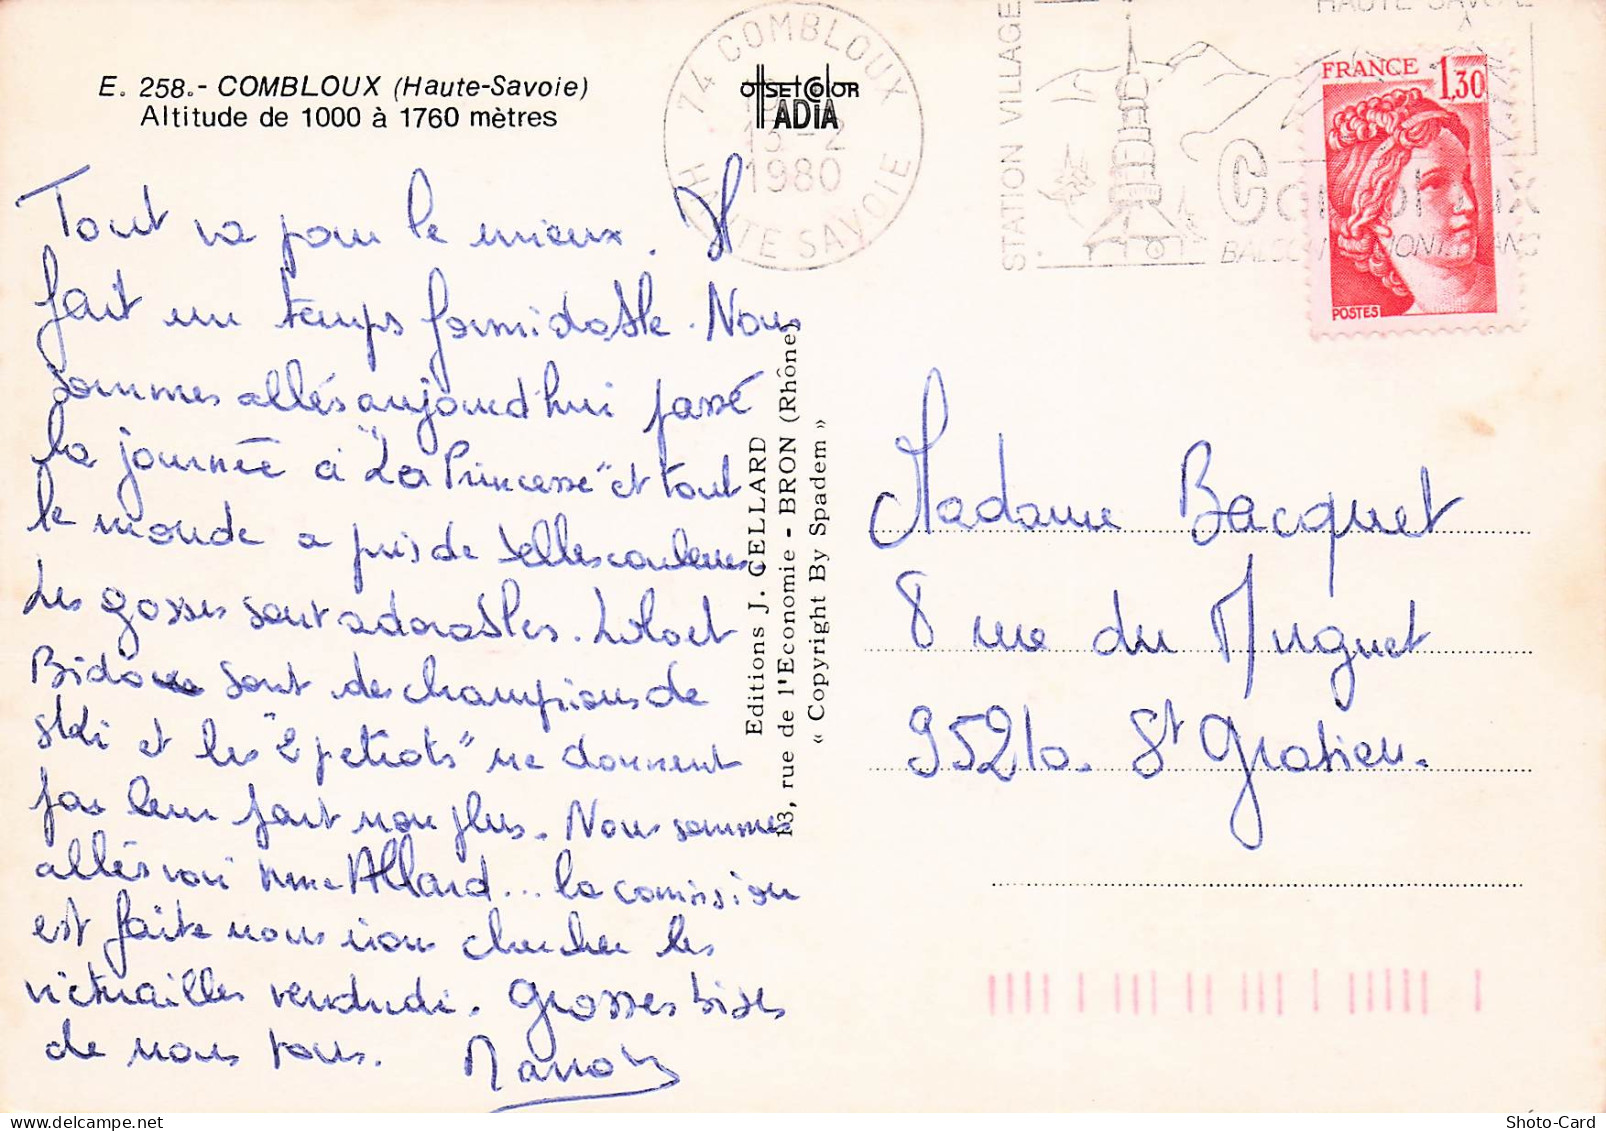 E. 258.- COMBLOUX (Haute-Savoie)
Altitude de 1000 à 1760 mètres
Tout va pour le mieux. Il
fait un temps formidable. Nous
sommes allés aujourd'hui passé
la journée à "La Princesse" et tout
le monde a pris de belles couleurs.
Les gosses sont adorables. Lolo et
Bidou sont des champions de
ski et les "2 petiots" ne donnent
pas leur part non plus. Nous sommes
allés voir Mme Allard... la comission
est faite nous irons chercher les
victuailles vendredi. Grosses bises
de nous tous.
OffsetColor
ADIA
Editions J. CELLARD
13, rue de l'Economie - BRON (Rhône)
« Copyright By Spadem »
74 COMBLOUX
13-2
1980
HAUTE SAVOIE
STATION VILLAGE
HAUTE SAVOIE
Combloux
FRANCE
1,30
POSTES
Madame Bacquet
8 rue du Muguet
95210. St Gratien.
Shoto-Card